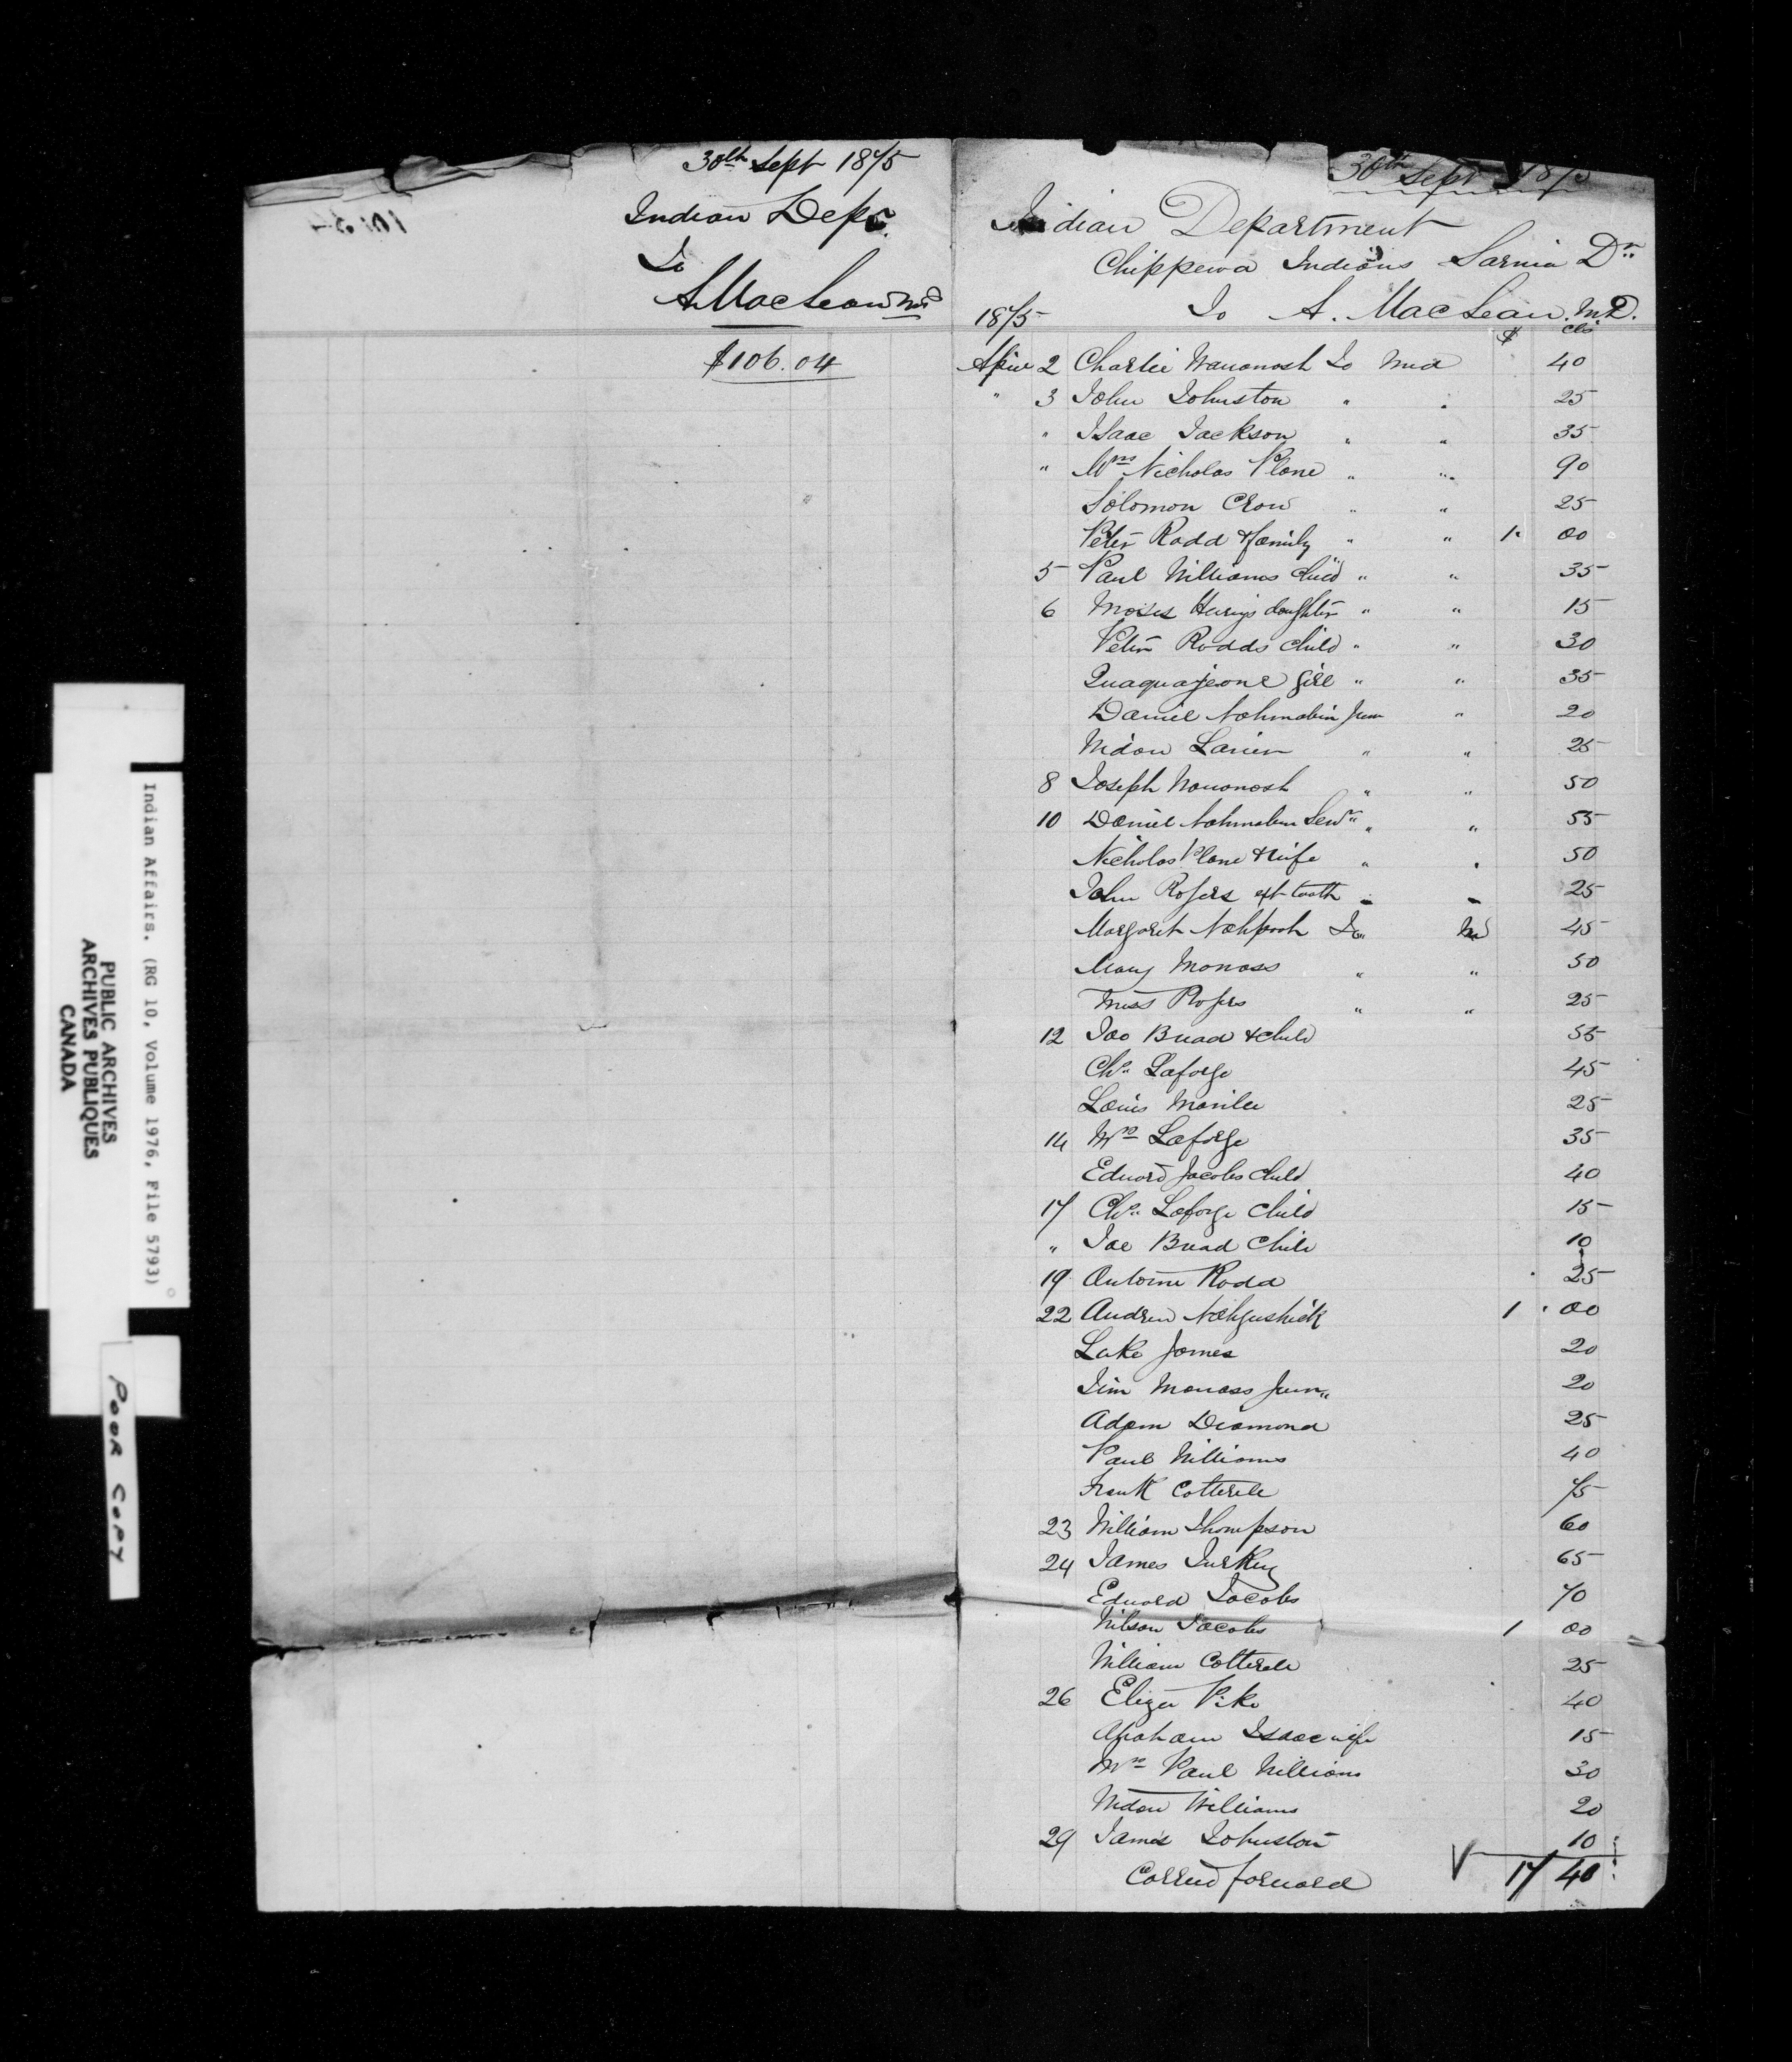 30th Sept 1875
Indian Dept.
To
A. MacLean MD
$106.04
30th Sept 1875
Indian Department
Chippewa Indians Sarnia Dr.
1875 To A. MacLean. MD.
$ cts
April 2 Charlie Wawanosh To Med 40
" 3 John Johnston " " 25
" Isaac Jackson " " 35
" Mrs Nicholas Plane " " 90
Solomon Crow " " 25
Peter Rodd & family " " 1. 00
5 Paul Williams Child " " 35
6 Moses daughter " " 15
Peter Rodds Child " " 30
Quaquajeone girl " " 35
Daniel Nahmabin Jun " 20
Widow " " 25
8 Joseph Wawanosh " " 50
10 Daniel Nahmabin Senr " " 55
Nicholas Plane & wife " " 50
John Rogers ext tooth " " 25
Margaret Nahpooh To Md 45
Mary Monass " " 50
Miss Rogers " " 25
12 Joe & Child 55
Chs. Laforge 45
Louis 25
14 Mrs Laforge 35
Edward Jacobs Child 40
17 Chs. Laforge Child 15
" Joe Child 10
19 Antoine Rodd 25
22 Andrew Nahgushick 1. 00
Luke James 20
Jim Monass Jun. 20
Adam Diamond 25
Paul Williams 40
Frank Cotterele 75
23 William Thompson 60
24 James Turkey 65
Edward Jacobs 70
Wilson Jacobs 1 00
William Cotterele 25
26 Eliza Pike 40
Abraham Isaac wife 15
Mrs Paul Williams 30
Widow Williams 20
29 James Johnston 10
Carried forward 17 40
Indian Affairs. (RG 10, Volume 1976, File 5793)
PUBLIC ARCHIVES
ARCHIVES PUBLIQUES
CANADA
POOR COPY